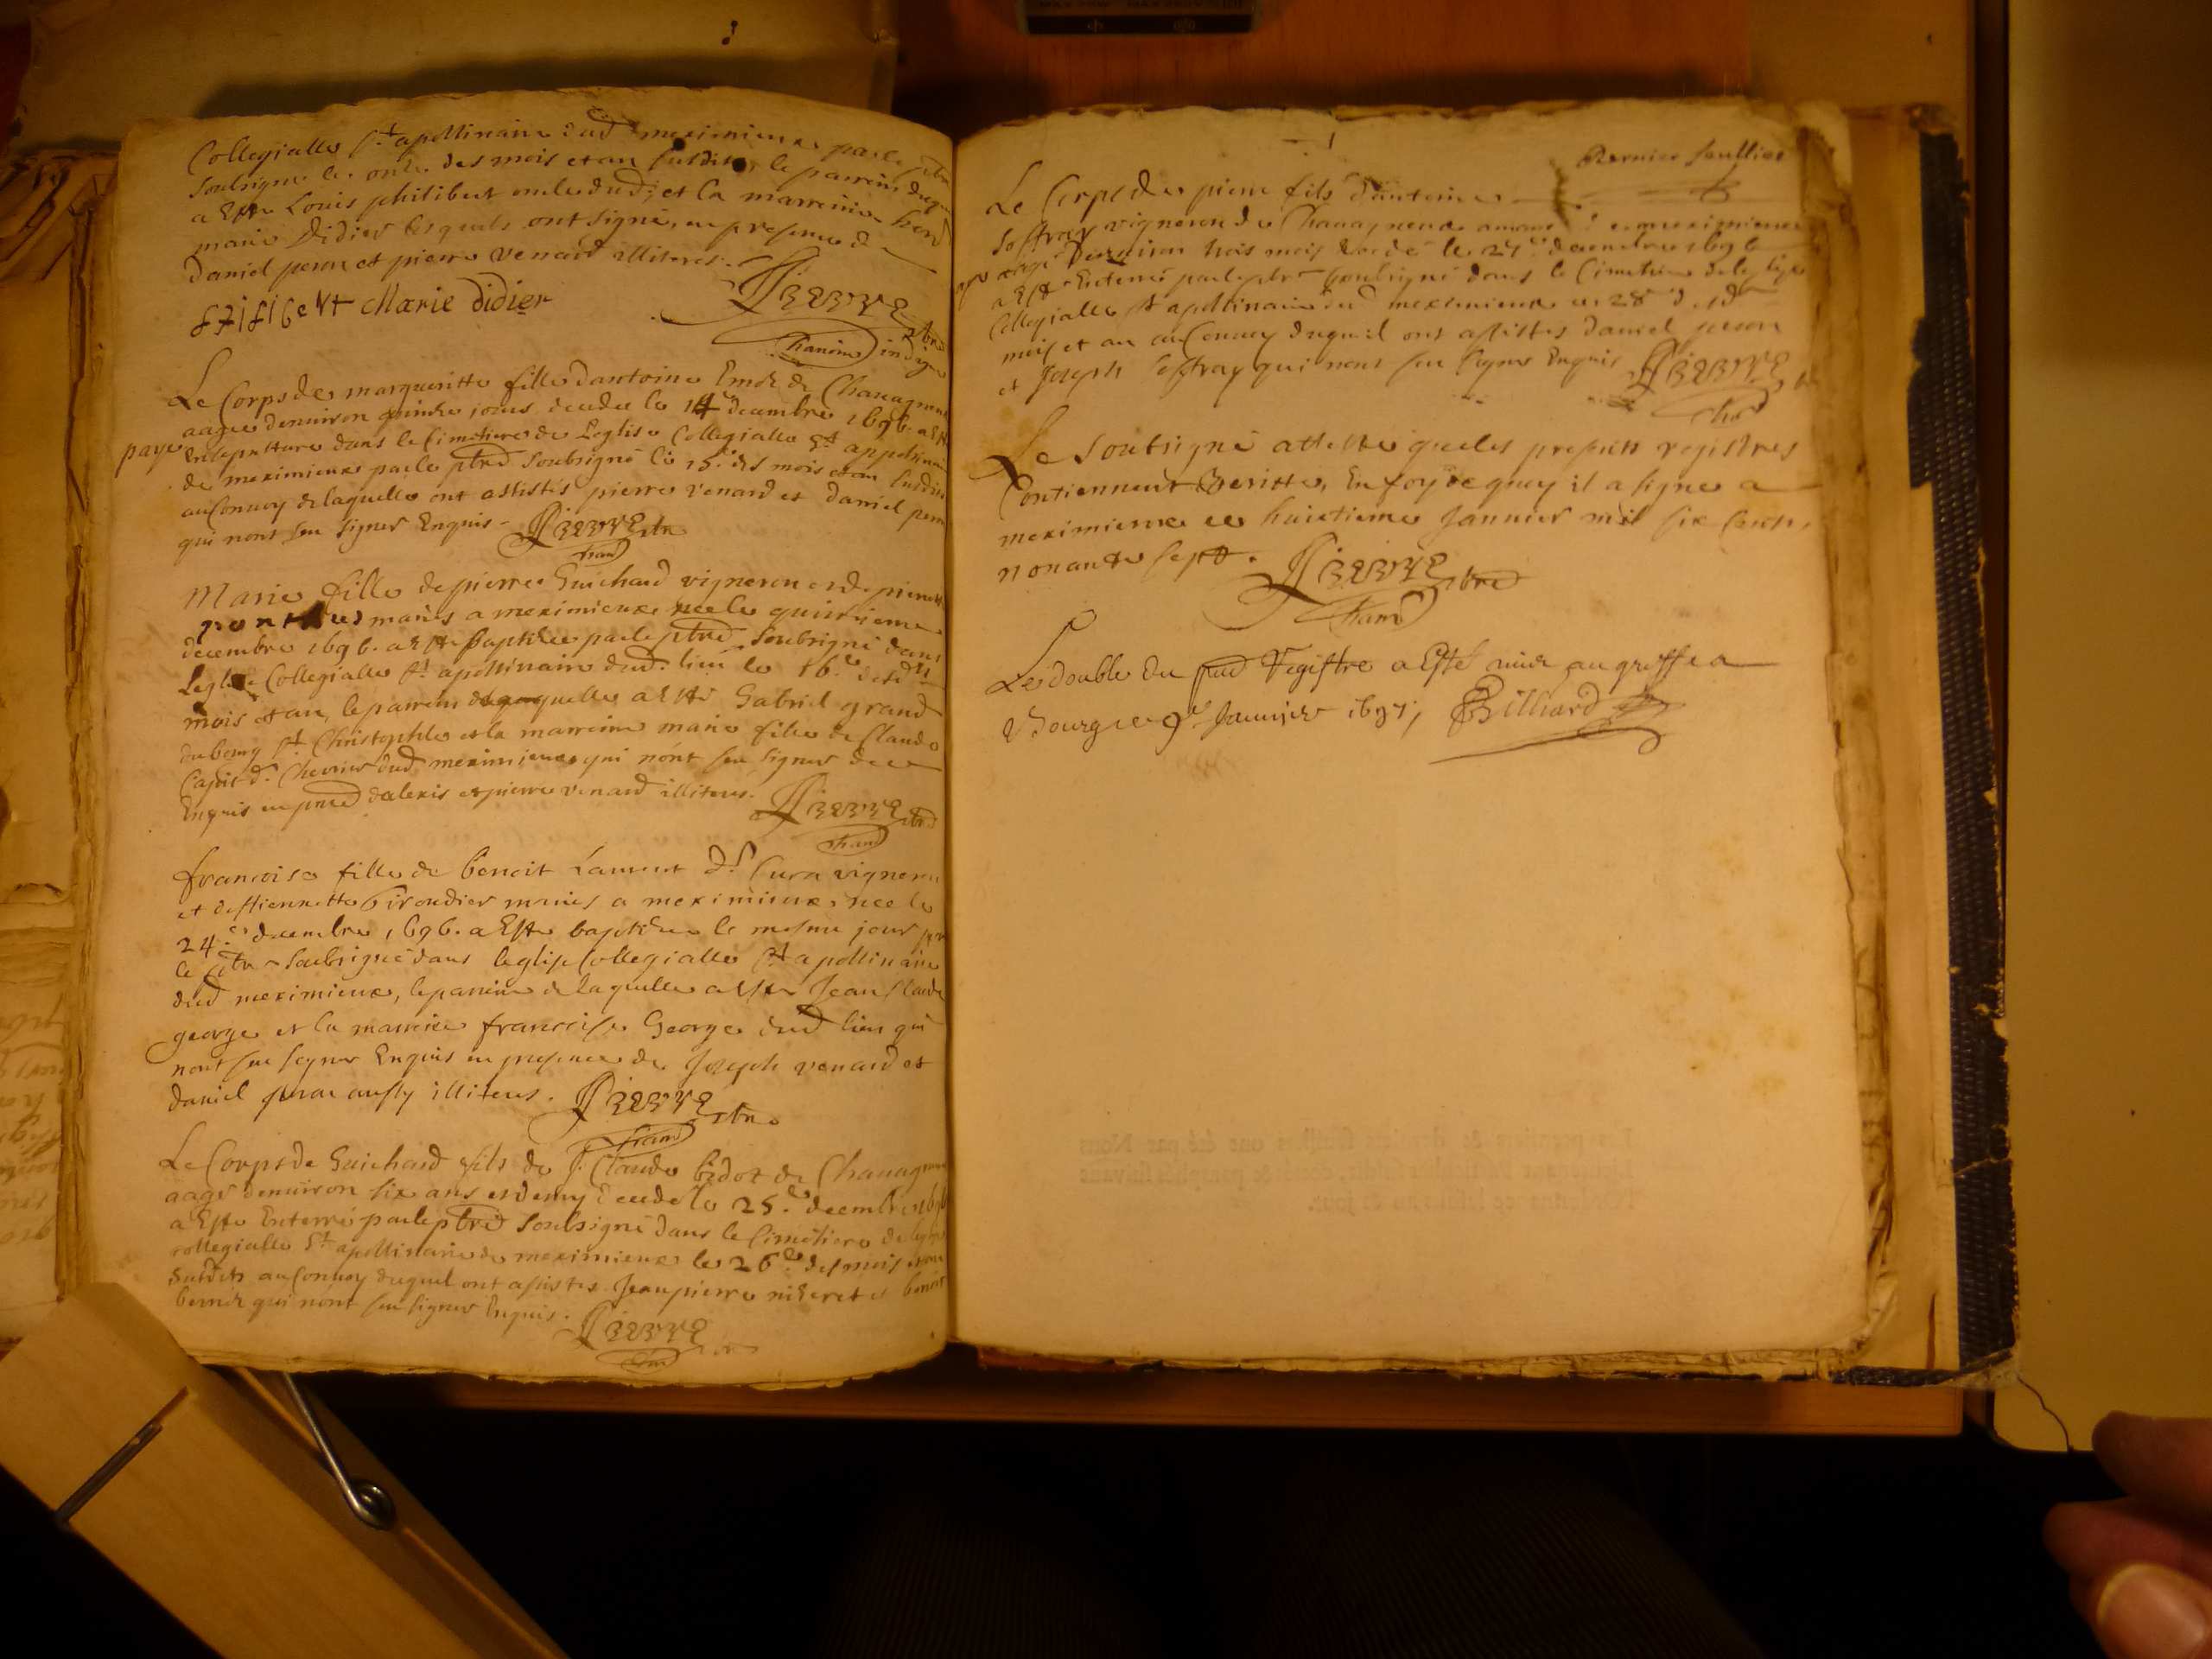 Collegialle St apollinaire dud meximieux par le ptre
soubsigne le onze des mois et an susdits, le parrein duquel
a Este Louis philibert oncle dud; et la marreine
marie Didier lesquels ont signé, en presence de
Daniel peron et pierre venard illiteres.
filibert Marie didier
Le Corps de margueritte fille dantoine de Chanagneux
aagee denuiron quinze jours decedee le 14 decembre 1696. a Este
paye
Ensepulture dans le Cimetiere de Leglise Collegialle St appolinaire
de meximieux par le ptre soubsigné le 15e des mois et an susdits
au Conuoy de laquelle ont assistés pierre venard et daniel peron
qui nont sçu signer Enquis.
Marie fille de pierre Guichard vigneron et de pierrette
mariés a meximieux nee le quinzieme
decembre 1696. a Este baptizee par le ptre soubsigné dans
Leglise Collegialle St apollinaire dud. lieu le 16e desd
mois et an, le parrein de laquelle a Este Gabriel grand
du bourg St Christophle et la marreine marie fille de Claude
Chevrier dud meximieux qui nont sçu signer de ce
Enquis en pnce dalexis et pierre venard illiteres.
francoise fille de benoit Laurent dt Cura vigneron
et destiennette Girondier mariés a meximieux nee le
24e decembre 1696. a Este baptizee le mesme jour par
le ptre soubsigné dans leglise Collegialle St apollinaire
dud meximieux, le parrein de laquelle a Este Jean Claude
george et la marreine francoise George dud lieu qui
nont sçu signer Enquis en presence de Joseph venard et
daniel peron aussy illiteres.
Le Corps de Guichard fils de Claude bidot de Chanagneux
aagé denuiron six ans et demy decedé le 25e decembre 1696
a Este Enterré par le ptre soubsigné dans le Cimetiere de leglise
collegialle St apollinaire de meximieux le 26e des mois et an
susdits au Conuoy duquel ont assistes Jean pierre et benoit
qui nont sçu signer Enquis.
Dernier feullier
Le Corps de pierre fils dantoine
Joffray vigneron de Chanagneux
aagé Denuiron trois mois decedé le 27e decembre 1696
a Este Enterré par le ptre soubsigné dans le Cimetiere de leglise
Collegialle St apollinaire dud meximieux le 28e d
mois et an au Conuoy duquel ont assistes daniel peron
et Joseph Joffray qui nont sçu signer Enquis
Le soubsigné atteste que les presents registres
Contiennent Veritté, En foy de quoy il a signé a
meximieux ce huictieme Januier mil six Cents
nonante sept.
Le double du pnt Registre a Esté mis au greffe a
Bourg ce 9e Januier 1697, Billiard